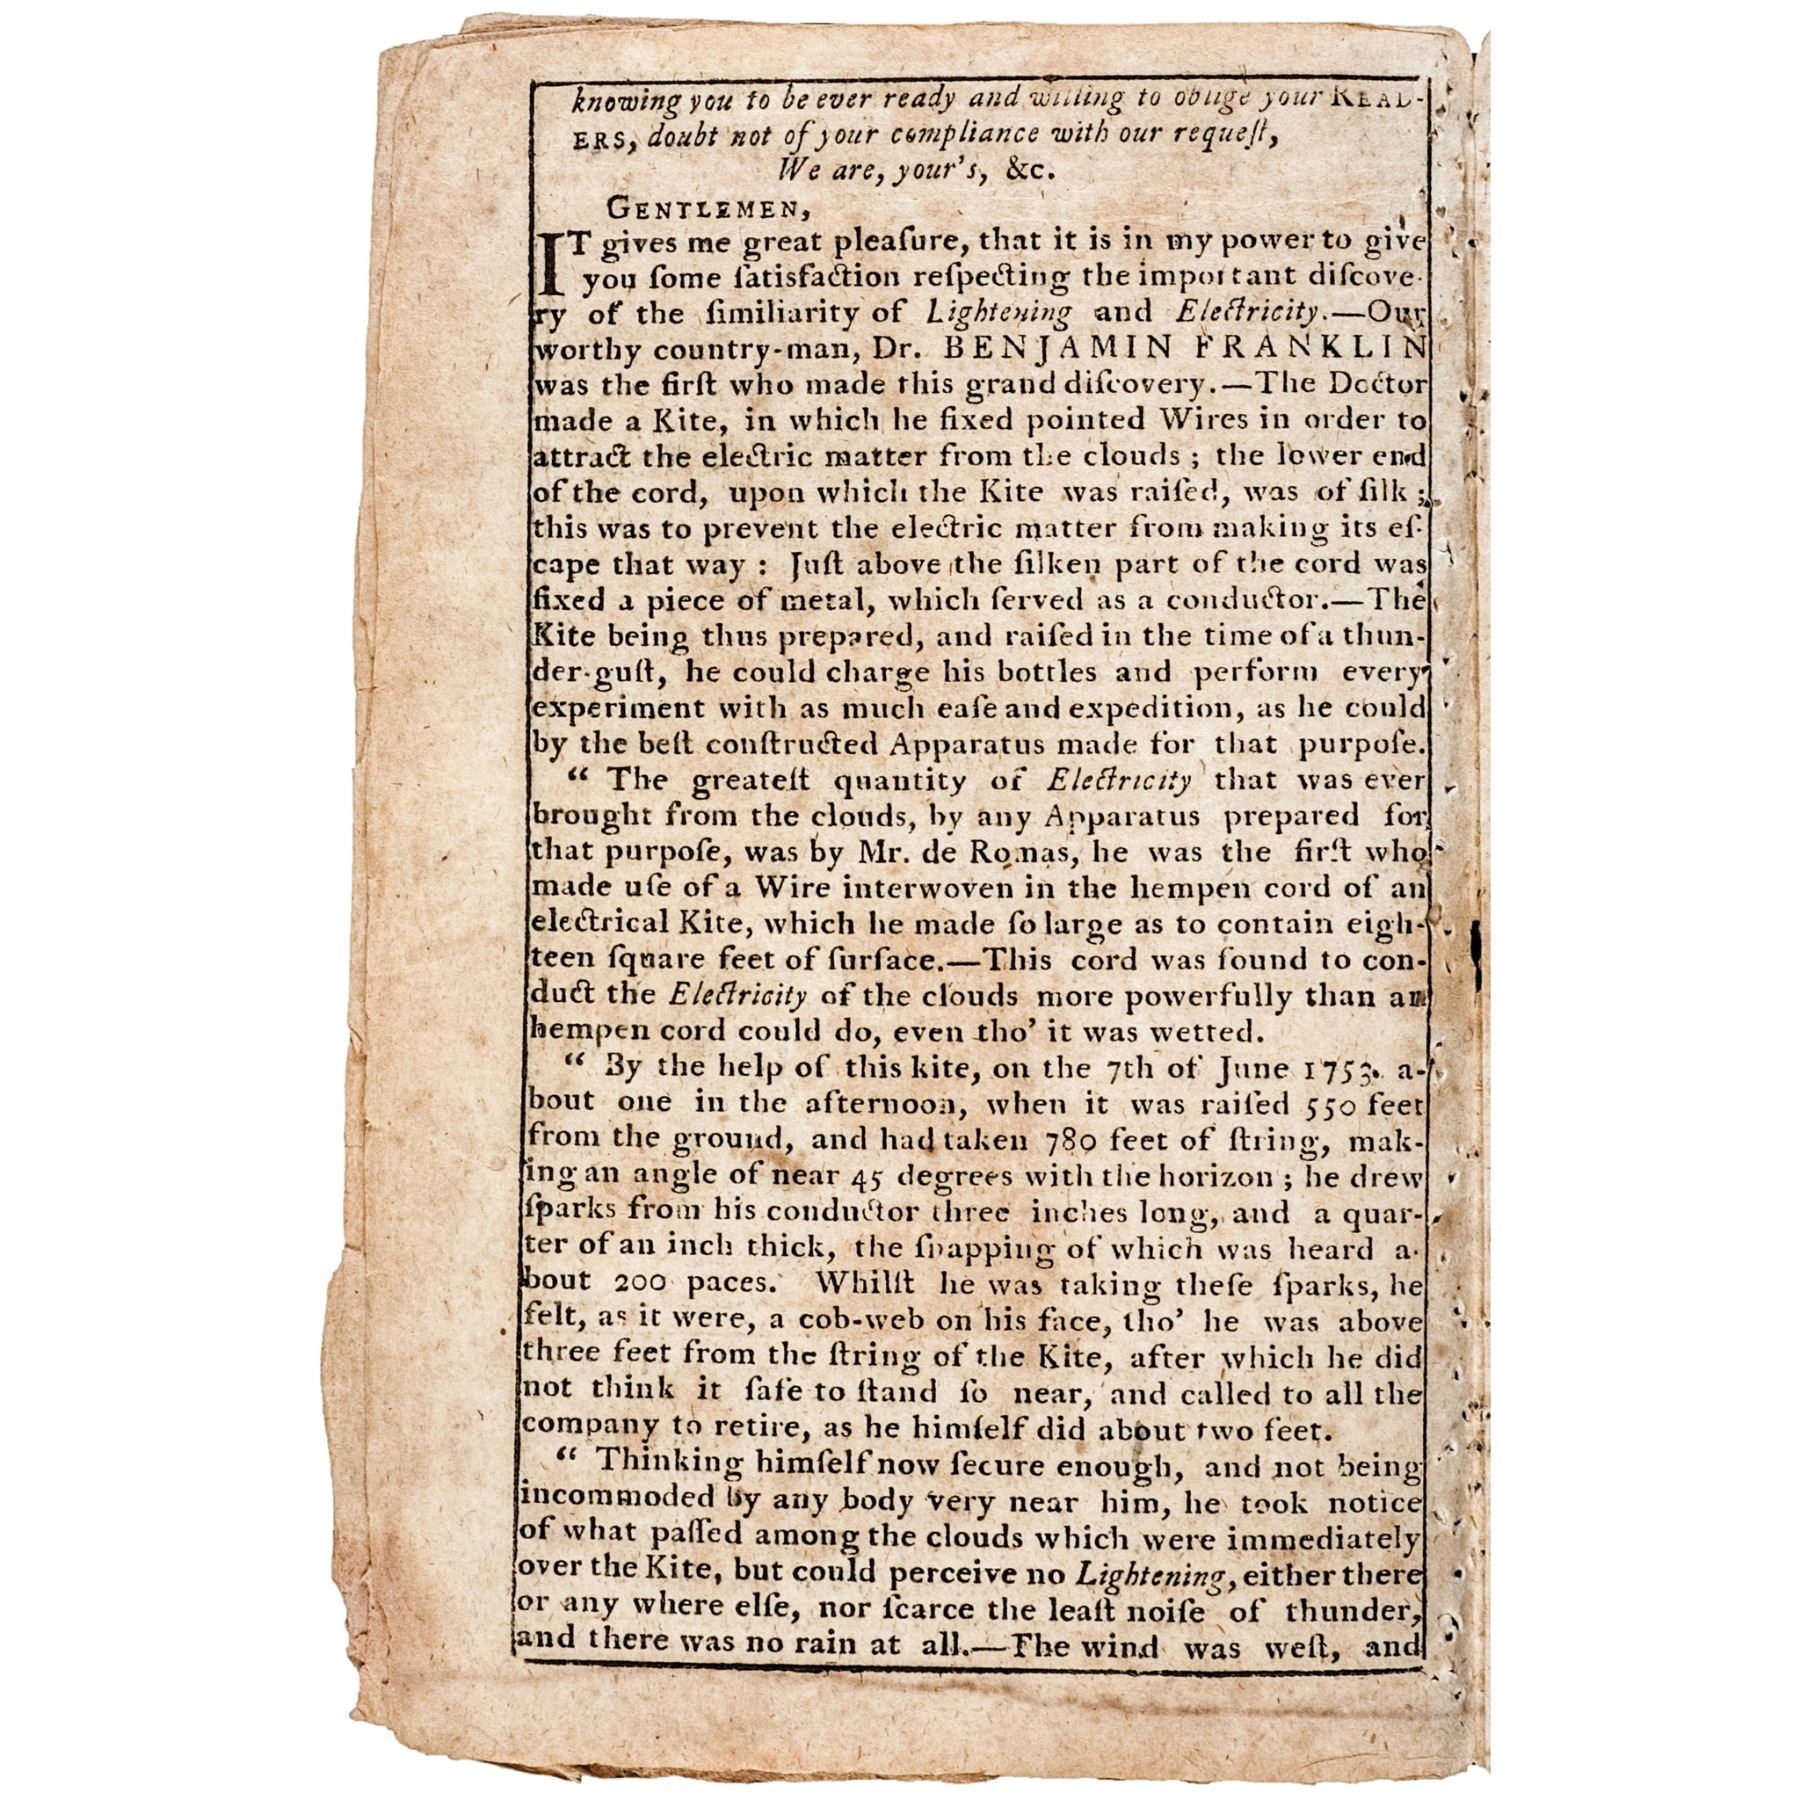 knowing you to be ever ready and willing to oblige your READ-
ERS, doubt not of your compliance with our requeſt,
We are, your's, &c.
GENTLEMEN,
IT gives me great pleaſure, that it is in my power to give
you ſome ſatisfaction reſpecting the important diſcove-
ry of the ſimiliarity of Lightening and Electricity.—Our
worthy country-man, Dr. BENJAMIN FRANKLIN
was the firſt who made this grand diſcovery.—The Doctor
made a Kite, in which he fixed pointed Wires in order to
attract the electric matter from the clouds ; the lower end
of the cord, upon which the Kite was raiſed, was of ſilk ;
this was to prevent the electric matter from making its eſ-
cape that way : Juſt above the ſilken part of the cord was
fixed a piece of metal, which ſerved as a conductor.—The
Kite being thus prepared, and raiſed in the time of a thun-
der-guſt, he could charge his bottles and perform every
experiment with as much eaſe and expedition, as he could
by the beſt conſtructed Apparatus made for that purpoſe.
“ The greateſt quantity of Electricity that was ever
brought from the clouds, by any Apparatus prepared for
that purpoſe, was by Mr. de Romas, he was the firſt who
made uſe of a Wire interwoven in the hempen cord of an
electrical Kite, which he made ſo large as to contain eigh-
teen ſquare feet of ſurface.—This cord was found to con-
duct the Electricity of the clouds more powerfully than an
hempen cord could do, even tho' it was wetted.
“ By the help of this kite, on the 7th of June 1753. a-
bout one in the afternoon, when it was raiſed 550 feet
from the ground, and had taken 780 feet of ſtring, mak-
ing an angle of near 45 degrees with the horizon ; he drew
ſparks from his conductor three inches long, and a quar-
ter of an inch thick, the ſnapping of which was heard a-
bout 200 paces. Whilſt he was taking theſe ſparks, he
felt, as it were, a cob-web on his face, tho' he was above
three feet from the ſtring of the Kite, after which he did
not think it ſafe to ſtand ſo near, and called to all the
company to retire, as he himſelf did about two feet.
“ Thinking himſelf now ſecure enough, and not being
incommoded by any body very near him, he took notice
of what paſſed among the clouds which were immediately
over the Kite, but could perceive no Lightening, either there
or any where elſe, nor ſcarce the leaſt noiſe of thunder,
and there was no rain at all.—The wind was weſt, and